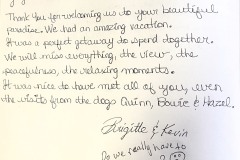 Thank you for welcoming us to your beautiful
paradise. We had an amazing vacation.
It was a perfect getaway to spend together.
We will miss everything, the view, the
peacefulness, the relaxing moments.
It was nice to have met all of you, even
the visits from the dogs Quinn, Bowie & Hazel.
Brigitte & Kevin
Do we really have to